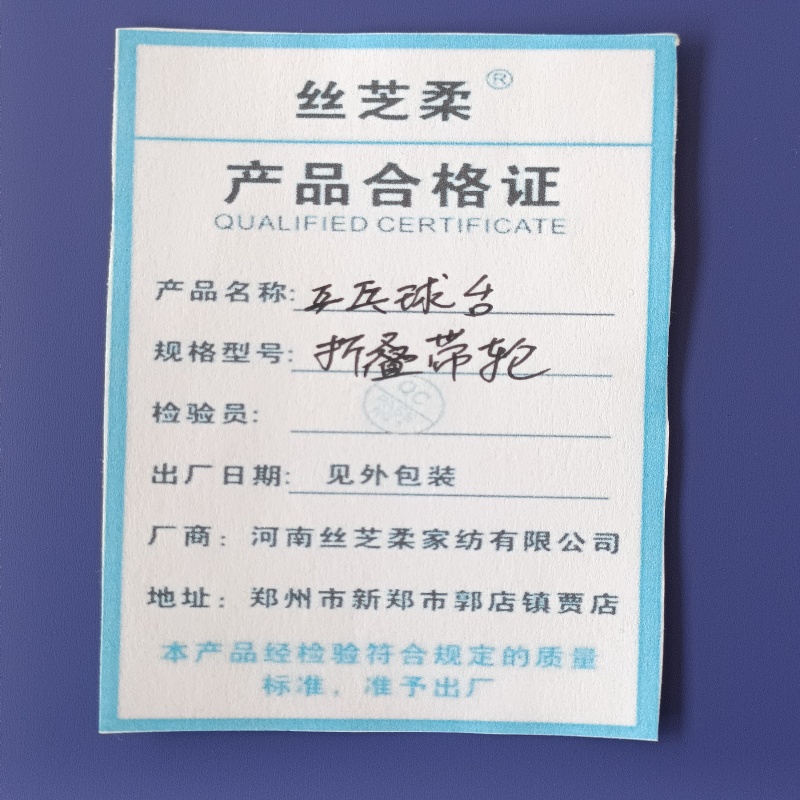 丝芝柔®
产品合格证
QUALIFIED CERTIFICATE
产品名称: 乒乓球台
规格型号: 折叠带轮
QC
检验员:
出厂日期: 见外包装
厂商: 河南丝芝柔家纺有限公司
地址: 郑州市新郑市郭店镇贾店
本产品经检验符合规定的质量
标准，准予出厂